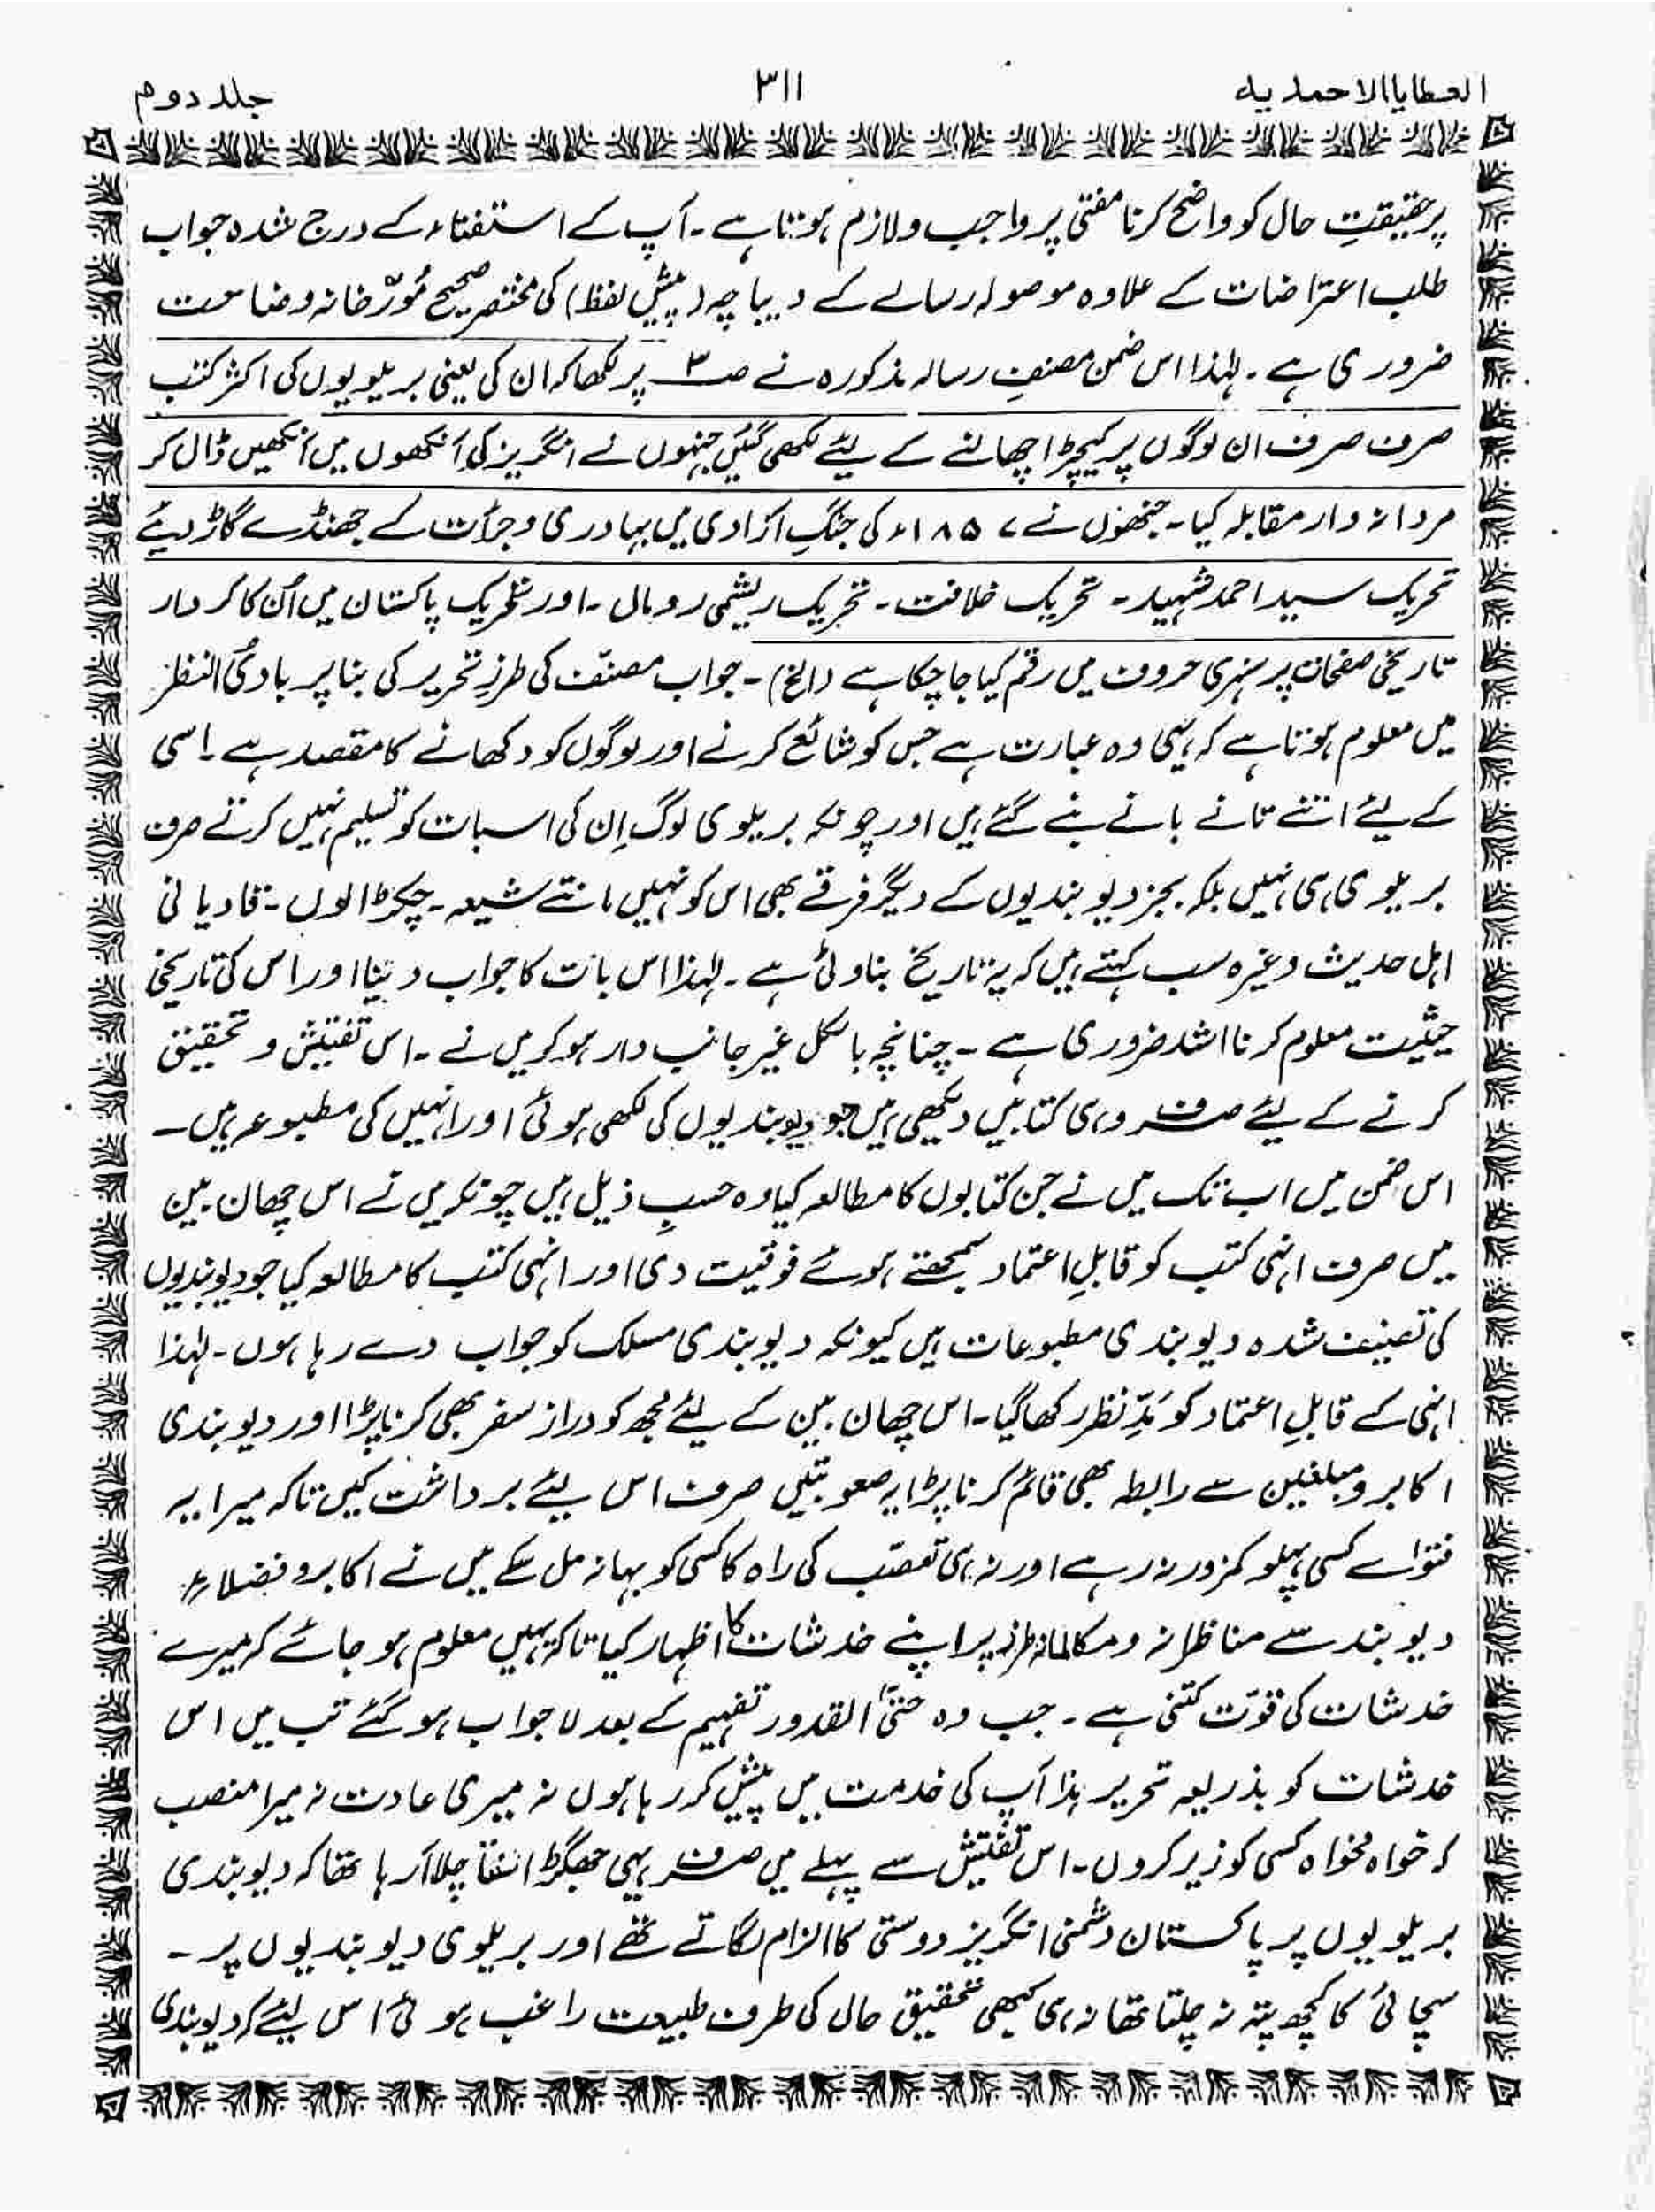 العطایا الاحمدیہ
۳۱۱
جلد دوم
پر حقیقتِ حال کو واضح کرنا مفتی پر واجب ولازم ہوتا ہے۔ آپ کے استفتاء کے درج شدہ جواب
طلب اعتراضات کے علاوہ موصولہ رسالے کے دیباچہ (پیش لفظ) کی مختصر صحیح مُورّخانہ وضاحت
ضروری ہے۔ لہٰذا اس ضمن مصنفِ رسالہ مذکورہ نے صـ۳ پر لکھا کہ ان کی یعنی بریلویوں کی اکثر کتب
صرف صرف ان لوگوں پر کیچڑ اچھالنے کے لیئے لکھی گئیں جنہوں نے انگریز کی آنکھوں میں آنکھیں ڈال کر
مردانہ وار مقابلہ کیا۔ جنھوں نے ۱۸۵۷ء کی جنگِ آزادی میں بہادری وجرأت کے جھنڈے گاڑ دیئے
تحریک سید احمد شہید۔ تحریک خلافت۔ تحریک ریشمی رومال ۔اور تحریک پاکستان میں اُن کا کردار
تاریخی صفحات پر سنہری حروف میں رقم کیا جا چکا ہے (الخ)۔ جواب مصنّف کی طرزِ تحریر کی بنا پر بادیُ النظر
میں معلوم ہوتا ہے کہ یہی وہ عبارت ہے جس کو شائع کرنے اور لوگوں کو دکھانے کا مقصد ہے ۔اسی
کے لیئے اتنے تانے بانے بنے گئے ہیں اور چونکہ بریلوی لوگ اِن کی اس بات کو تسلیم نہیں کرتے صرف
بریلوی ہی نہیں بلکہ بجز دیوبندیوں کے دیگر فرقے بھی اس کو نہیں مانتے شیعہ۔ چکڑالوں۔ قادیانی
اہل حدیث وغیرہ سب کہتے ہیں کہ یہ تاریخ بناوٹی ہے۔ لہٰذا اس بات کا جواب دینا اور اس کی تاریخی
حیثیت معلوم کرنا اشد ضروری ہے۔ چنانچہ بالکل غیر جانب دار ہو کر میں نے۔ اس تفتیش و تحقیق
کرنے کے لیئے صرف وہی کتابیں دیکھی ہیں جو دیوبندیوں کی لکھی ہوئی اور انہیں کی مطبوعہ ہیں۔
اس ضمن میں اب تک میں نے جن کتابوں کا مطالعہ کیا وہ حسبِ ذیل ہیں چونکہ میں نے اس چھان بین
میں صرف انہی کتب کو قابلِ اعتماد سمجھتے ہوئے فوقیت دی اور انہی کتب کا مطالعہ کیا جو دیوبندیوں
کی تصنیف شدہ دیوبندی مطبوعات ہیں کیونکہ دیوبندی مسلک کو جواب دے رہا ہوں۔ لہٰذا
انہی کے قابلِ اعتماد کو مَدِّ نظر رکھا گیا۔ اس چھان بین کے لیئے مجھ کو دراز سفر بھی کرنا پڑا اور دیوبندی
اکابر ومبلغین سے رابطہ بھی قائم کرنا پڑا یہ صعوبتیں صرف اس لیئے برداشت کیں تاکہ میرا یہ
فتوٰے کسی پہلو کمزور نہ رہے اور نہ ہی تعصّب کی راہ کا کسی کو بہانہ مل سکے میں نے اکابر و فضلاء
دیوبند سے مناظرانہ ومکالمانہ طرز پر اپنے خدشات کا اظہار کیا تاکہ ہمیں معلوم ہو جائے کہ میرے
خدشات کی قوّت کتنی ہے۔ جب وہ حتیُّ القدور تفہیم کے بعد لاجواب ہو گئے تب میں اس
خدشات کو بذریعہ تحریر ہٰذا آپ کی خدمت میں پیش کر رہا ہوں نہ میری عادت نہ میرا منصب
کہ خواہ مخواہ کسی کو زیر کروں۔ اس تفتیش سے پہلے میں صرف یہی جھگڑا سنتا چلا آرہا تھا کہ دیوبندی
بریلویوں پر پاکستان دشمنی انگریز دوستی کا الزام لگاتے تھے اور بریلوی دیوبندیوں پر۔
سچائی کا کچھ پتہ نہ چلتا تھا نہ ہی کبھی تحقیق حال کی طرف طبیعت راغب ہوئی اس لیئے کہ دیوبندی